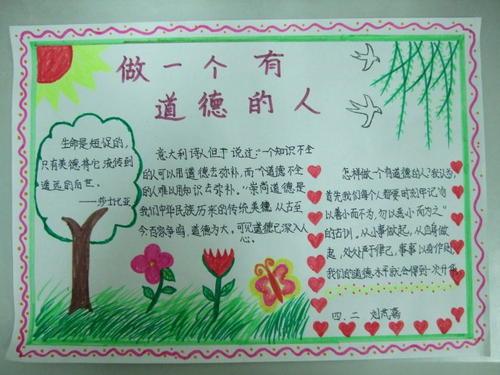 做一个有
道德的人
生命是短促的，
只有美德将它流传到
遥远的后世。
——莎士比亚
意大利诗人但丁说过："一个知识不全
的人可以用道德去弥补，而一个道德不全
的人难以用知识去弥补。"崇尚道德是
我们中华民族历来的传统美德，从古至
今百家争鸣，道德为大，可见道德已深入人
心。
怎样做一个有道德的人？我认为，
首先我们每个人都要时刻牢记"勿
以善小而不为，勿以恶小而为之"
的古训。从小事做起，从自身做
起，处处严于律己，事事以身作则，
我们的道德水平就会得到一次升华。
四、二 刘